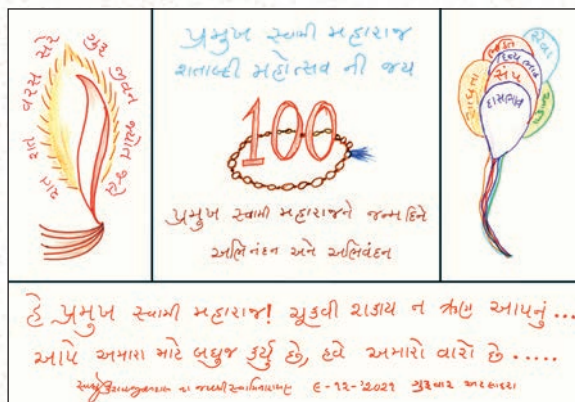 શત શત વરસ સેરે ગુરુ જીવન જ્યોત જલે
પ્રમુખ સ્વામી મહારાજ
શતાબ્દી મહોત્સવ ની જય
100
પ્રમુખ સ્વામી મહારાજને જન્મદિને
અભિનંદન અને અભિવંદન
સેવા
ભક્તિ
દિવ્યભાવ
સંપ
દાસભાવ
હે પ્રમુખ સ્વામી મહારાજ! ચૂકવી શકાય ન ઋણ આપનું...
આપે અમારા માટે બધુજ કર્યુ છે, હવે અમારો વારો છે .....
ના જયશ્રી સ્વામિનારાયણ ૯-૧૨-'૨૦૨૧ ગુરુવાર અટલાદરા